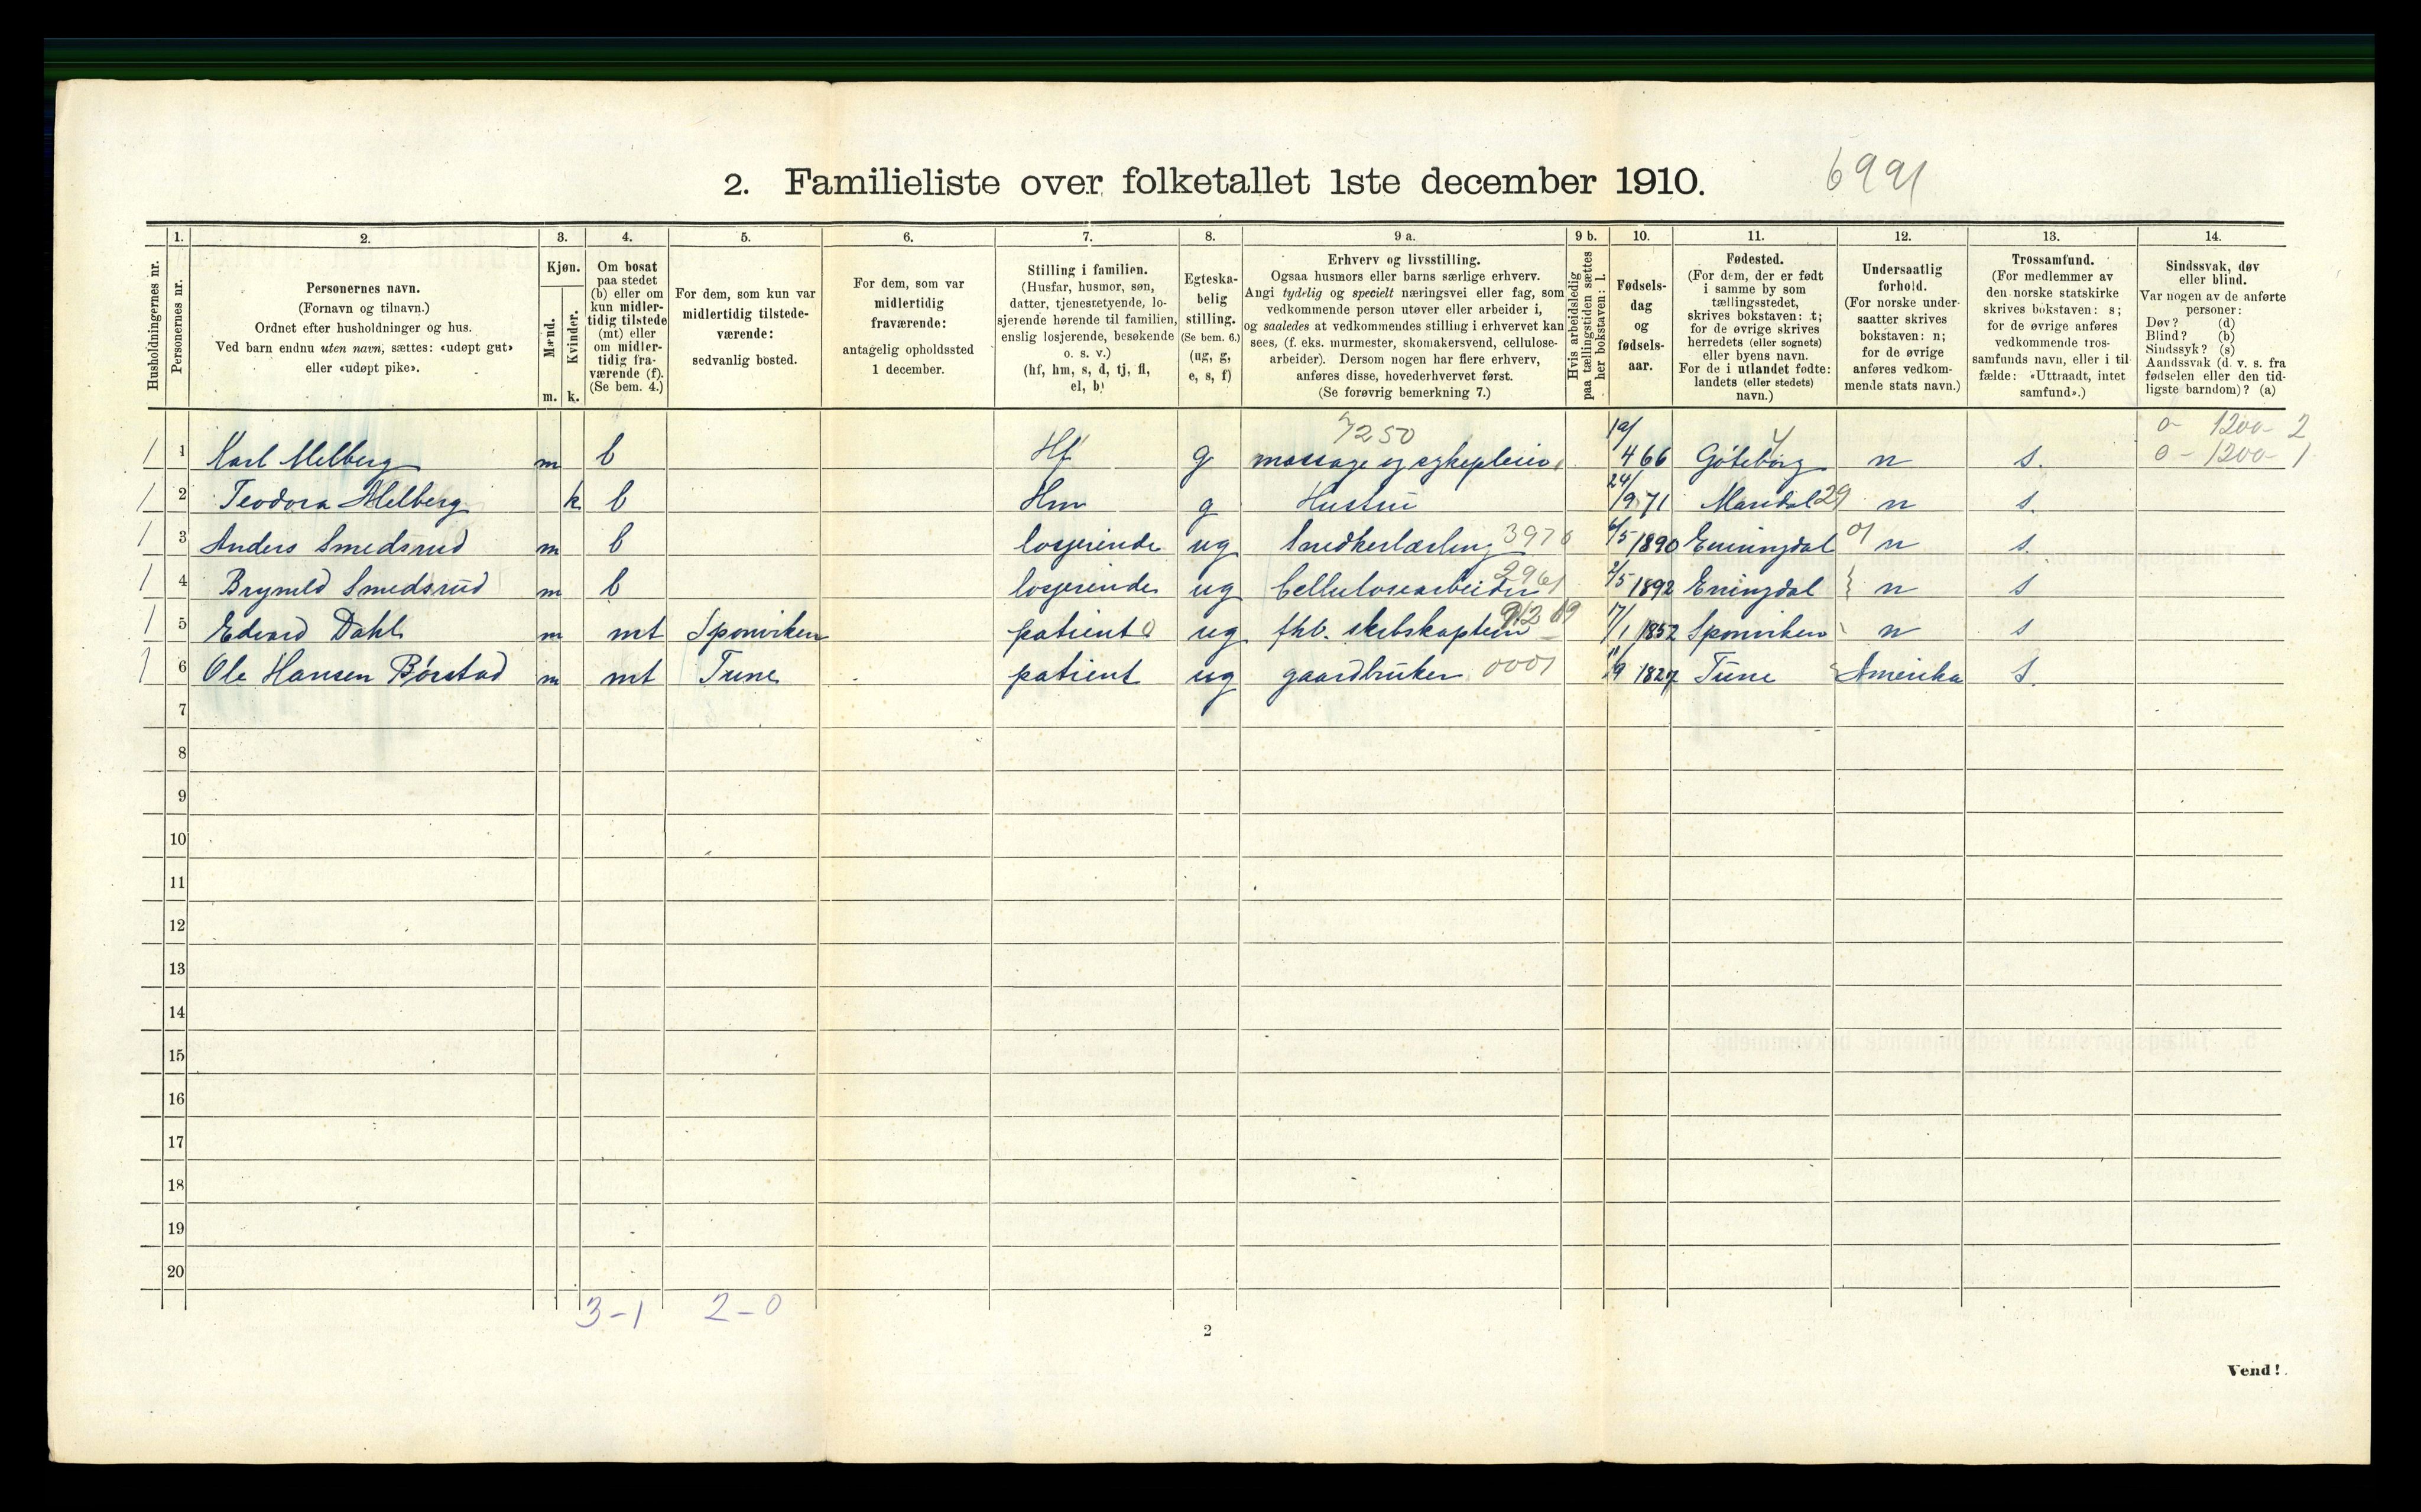 2. Familieliste over folketallet 1ste december 1910. 6991
1. 2. 3. 4. 5. 6. 7. 8. 9 a. 9 b. 10. 11. 12. 13. 14.
Husholdningernes nr.
Personernes nr.
Personernes navn.
(Fornavn og tilnavn.)
Ordnet efter husholdninger og hus.
Ved barn endnu uten navn, sættes: «udøpt gut»
eller «udøpt pike».
Kjøn.
Mænd.
Kvinder.
m. k.
Om bosat
paa stedet
(b) eller om
kun midler-
tidig tilstede
(mt) eller
om midler-
tidig fra-
værende (f).
(Se bem. 4.)
For dem, som kun var
midlertidig tilstede-
værende:
sedvanlig bosted.
For dem, som var
midlertidig
fraværende:
antagelig opholdssted
1 december.
Stilling i familien.
(Husfar, husmor, søn,
datter, tjenestetyende, lo-
sjerende hørende til familien,
enslig losjerende, besøkende
o. s. v.)
(hf, hm, s, d, tj, fl,
el, b)
Egteska-
belig
stilling.
(Se bem. 6.)
(ug, g,
e, s, f)
Erhverv og livsstilling.
Ogsaa husmors eller barns særlige erhverv.
Angi tydelig og specielt næringsvei eller fag, som
vedkommende person utøver eller arbeider i,
og saaledes at vedkommendes stilling i erhvervet kan
sees, (f. eks. murmester, skomakersvend, cellulose-
arbeider). Dersom nogen har flere erhverv,
anføres disse, hovederhvervet først.
(Se forøvrig bemerkning 7.)
Hvis arbeidsledig
paa tællingstiden sættes
her bokstaven: l.
Fødsels-
dag
og
fødsels-
aar.
Fødested.
(For dem, der er født
i samme by som
tællingsstedet,
skrives bokstaven: t;
for de øvrige skrives
herredets (eller sognets)
eller byens navn.
For de i utlandet fødte:
landets (eller stedets)
navn.)
Undersaatlig
forhold.
(For norske under-
saatter skrives
bokstaven: n;
for de øvrige
anføres vedkom-
mende stats navn.)
Trossamfund.
(For medlemmer av
den norske statskirke
skrives bokstaven: s;
for de øvrige anføres
vedkommende tros-
samfunds navn, eller i til-
fælde: «Uttraadt, intet
samfund».)
Sindssvak, døv
eller blind.
Var nogen av de anførte
personer:
Døv? (d)
Blind? (b)
Sindssyk? (s)
Aandssvak (d. v. s. fra
fødselen eller den tid-
ligste barndom)? (a)
7250 0- 1200- 2
1 1 Karl Melberg m b Hf g massage og sykepleie 19/4 66 Göteborg n s. 0- 1200- 1
1 2 Teodora Melberg k b Hm g Hustru 24/9 71 Mandal 29 n s.
1 3 Anders Smedsrud m b losjerende ug Snedkerlærling 3970 6/5 1890 Enningdal 01 n s.
1 4 Brynild Smedsrud m b losjerende ug Cellulosearbeider 2961 2/5 1892 Eningdal n s
1 5 Edvard Dahl m mt Sponviken patient ug fhb. skibskaptein 17/1 1852 Sponviken n s
1 6 Ole Hansen Børstad m mt Tune patient ug gaardbruker 0001 11/9 1827 Tune Amerika S.
7
8
9
10
11
12
13
14
15
16
17
18
19
20
3-1 2-0
2
Vend!